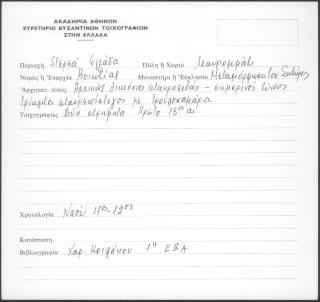 ΑΚΑΔΗΜΙΑ ΑΘΗΝΩΝ
ΕΥΡΕΤΗΡΙΟ ΒΥΖΑΝΤΙΝΩΝ ΤΟΙΧΟΓΡΑΦΙΩΝ
ΣΤΗΝ ΕΛΛΑΔΑ
Περιοχή Στερεά Ελλάδα Πόλη ή Χωριό Μαυρομμάτι
Νομός ή Ἐπαρχία Βοιωτίας Μοναστήρι ή Ἐκκλησία Μεταμόρφωση του Σωτήρος
Ἀρχιτεκτ. τύπος Αρχικώς δικιόνιος σταυροειδής - σημερινός τύπος
τρίκλιτος σταυρεπίστεγος με τρουλοκαμάρα
Τοιχογραφίες Δύο στρώματα Πρώτο 13ου αι.
Χρονολογία Ναού 11ος-12ος
Κατάσταση
Βιβλιογραφία Χαρ. Κοιλάκου 1η ΕΒΑ